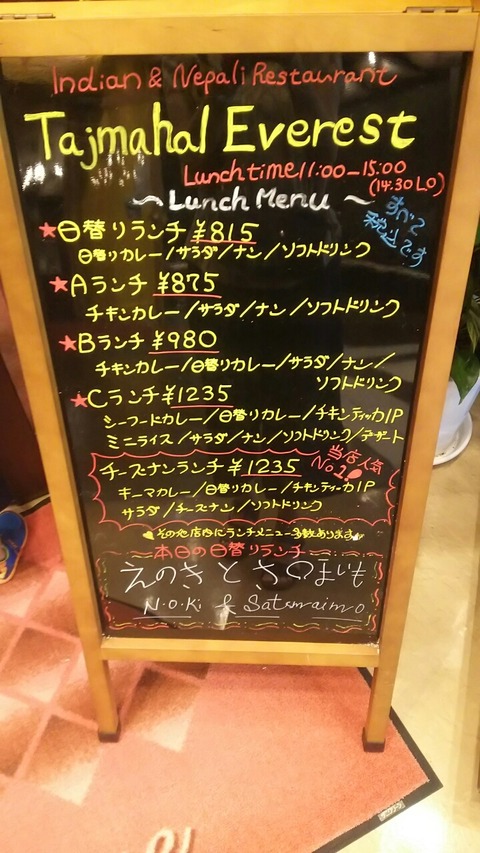 Indian & Nepali Restaurant
Tajmahal Everest
Lunchtime 11:00-15:00
(14:30 LO)
~Lunch Menu~
すべて
税込です
★日替りランチ ¥815
日替りカレー/サラダ/ナン/ソフトドリンク
★Aランチ ¥875
チキンカレー/サラダ/ナン/ソフトドリンク
★Bランチ ¥980
チキンカレー/日替りカレー/サラダ/ナン/
ソフトドリンク
★Cランチ ¥1235
シーフードカレー/日替りカレー/チキンティッカ1P
ミニライス/サラダ/ナン/ソフトドリンク/デザート
当店人気
No.1
チーズナンランチ ¥1235
キーマカレー/日替りカレー/チキンティッカ1P
サラダ/チーズナン/ソフトドリンク
その他店内にランチメニュー多数あります
本日の日替りランチ
えのきとさつまいも
N.o.Ki & Satsumaimo